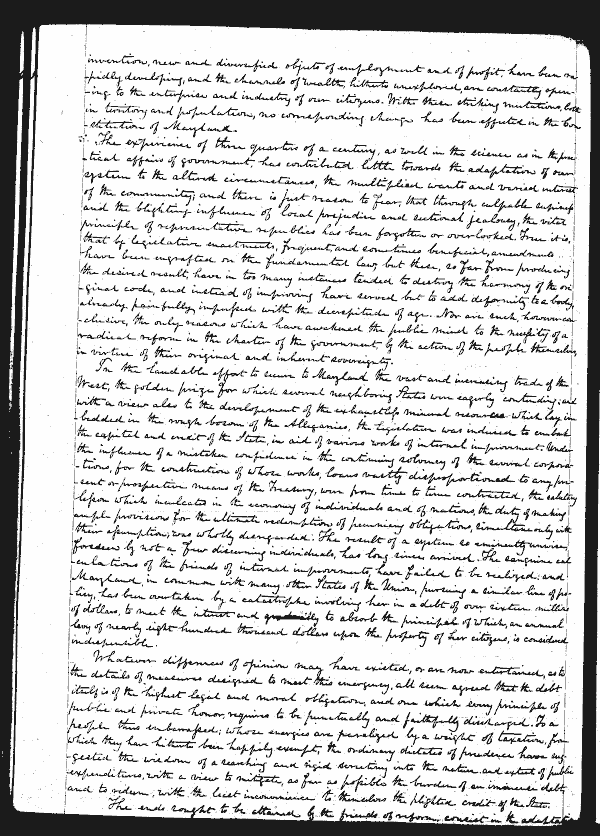 invention, new and diversified objects of employment and of profit, have been ra
-pidly developing, and the channels of wealth, hitherto unexplored, are constantly open-
-ing to the enterprise and industry of our citizens. With these striking mutations, both
in territory and population, no corresponding change has been effected in the Con
-stitution of Maryland.
The experience of three quarters of a century, as well in the science as in the prac
-tical affairs of government, has contributed little towards the adaptation of our
system to the altered circumstances, the multiplied wants and varied interests
of the community; and there is just reason to fear, that through culpable supineness
and the blighting influence of local prejudice and sectional jealousy, the vital
principle of representative republics has been forgotten or overlooked. True it is,
that by legislative enactments, frequent, and sometimes beneficial, amendments
have been engrafted on the fundamental law, but these, so far from producing
the desired result, have in too many instances tended to destroy the harmony of the ori
-ginal code, and instead of improving have served but to add deformity to a body,
already painfully impressed with the decrepitude of age. Nor are such, however con
-clusive, the only reasons which have awakened the public mind to the necessity of a
radical reform in the charter of the government, by the action of the people themselves,
in virtue of their original and inherent sovereignty.
In the laudable effort to secure to Maryland the vast and increasing trade of the
West, the golden prize for which several neighboring States were eagerly contending; and
with a view also to the development of the exhaustless mineral resources which lay im
-bedded in the rough bosom of the Alleganies, the legislature was induced to embark
the capital and credit of the State, in aid of various works of internal improvement. Under
the influence of a mistaken confidence in the continuing solvency of the several corpora
-tions, for the construction of whose works, loans vastly disproportioned to any pre-
-sent or prospective means of the Treasury, were from time to time contracted, the salutary
lesson which inculcates in the economy of individuals and of nations, the duty of making
ample provisions for the ultimate redemption of pecuniary obligations, simultaneously with
their assumption, was wholly disregarded. The result of a system so eminently unwise,
foreseen by not a few discerning individuals, has long since arrived. The sanguine cal
-culations of the friends of internal improvements, have failed to be realized; and
Maryland, in common with many other States of the Union, pursuing a similar line of po-
-licy, has been overtaken by a catastrophe involving her in a debt of over sixteen millions
of dollars, to meet the interest and gradually to absorb the principal of which, an annual
levy of nearly eight hundred thousand dollars upon the property of her citizens, is considered
indispensible.
Whatever differences of opinion may have existed, or are now entertained, as to
the details of measures designed to meet this emergency, all seem agreed that the debt
itself is of the highest legal and moral obligation, and one which every principle of
public and private honor, requires to be punctually and faithfully discharged. To a
people thus embarrassed; whose energies are paralized by a weight of taxation, from
which they have hitherto been happily exempt, the ordinary dictates of prudence have sug
-gested the wisdom of a searching and rigid scrutiny into the nature and extent of public
expenditures, with a view to mitigate, as far as possible the burden of an immense debt
and to redeem, with the least inconvenience to themselves the plighted credit of the State.
The ends sought to be attained by the friends of reform, consist in the adaptation